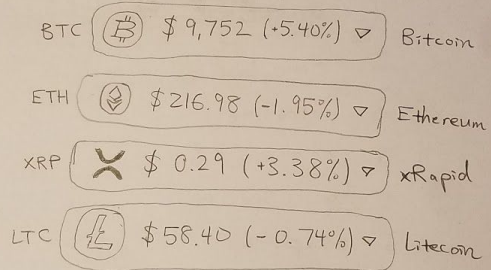 BTC $ 9,752 (+5.40%) ▽ Bitcoin
ETH $216.98 (-1.95%) ▽ Ethereum
XRP $ 0.29 (+3.38%) ▽ xRapid
LTC $58.40 (-0.74%) ▽ Litecoin